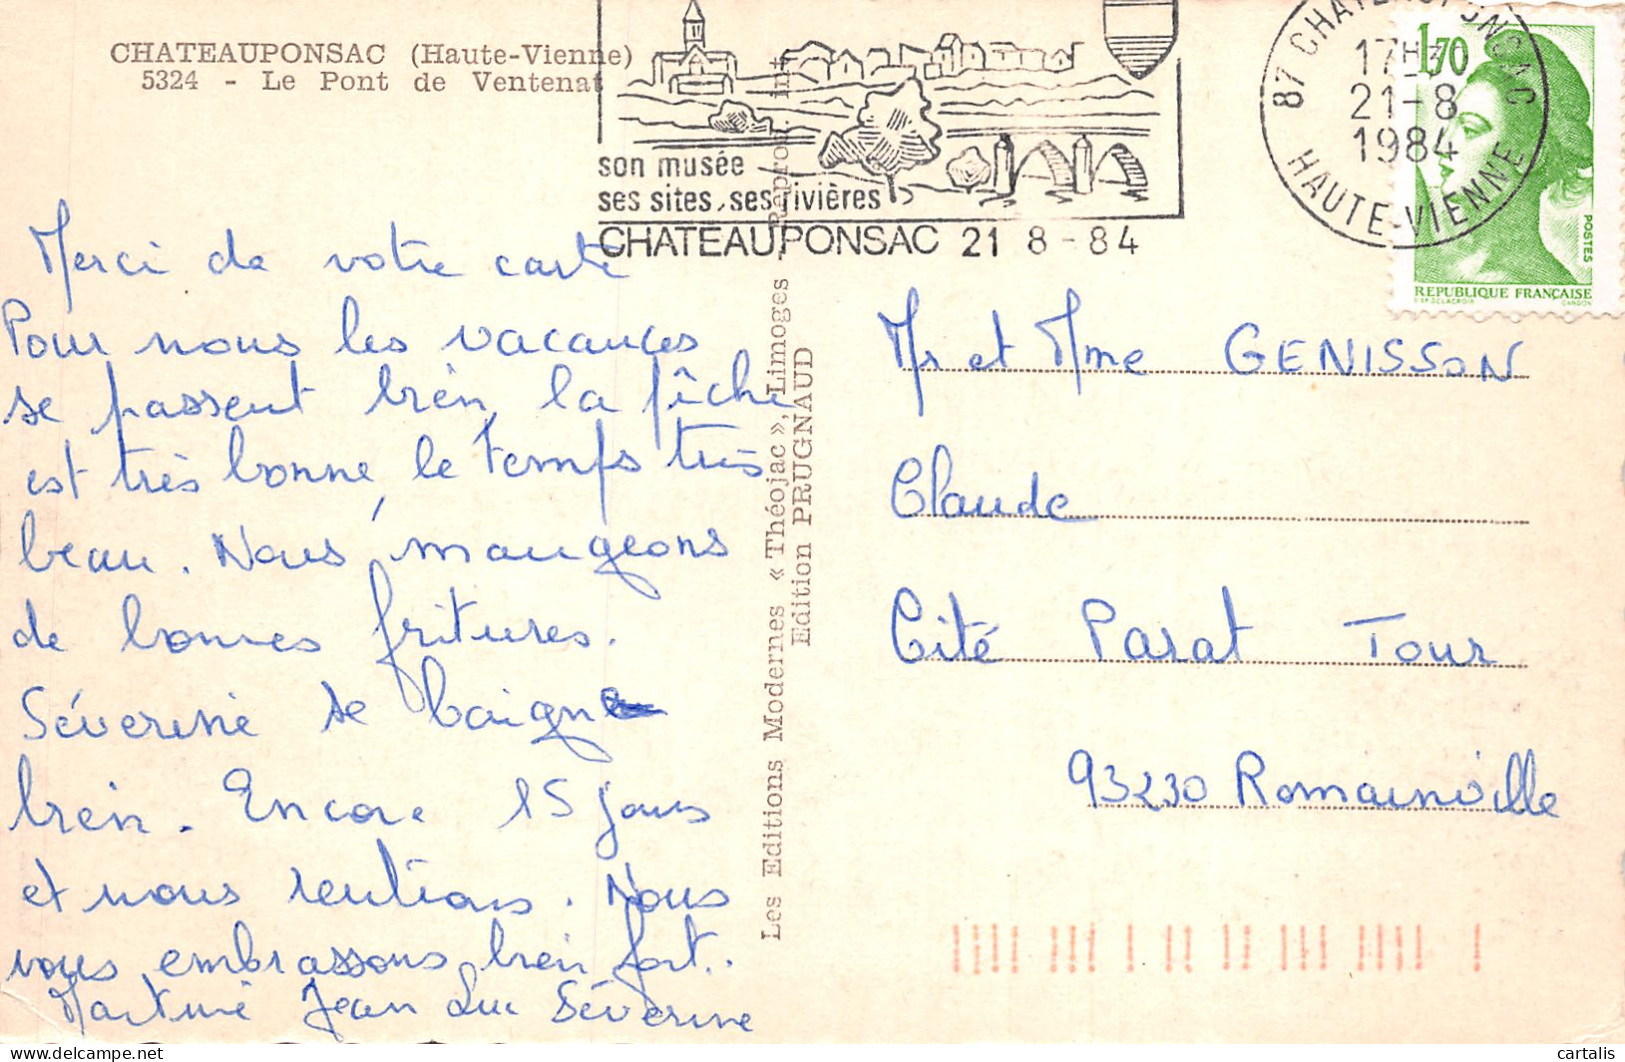 CHATEAUPONSAC (Haute-Vienne)
5324 - Le Pont de Ventenat
son musée
ses sites, ses rivières
CHATEAUPONSAC 21 8 - 84
87 CHATEAUPONSAC
17H
21-8
1984
HAUTE-VIENNE
1,70
POSTES
REPUBLIQUE FRANÇAISE
D'AP. DELACROIX GANDON
Merci de votre carte
Pour nous les vacances
se passent bien, la pêche
est très bonne, le temps très
beau. Nous mangeons
de bonnes fritures.
Séverine se baigne
bien. Encore 15 jours
et nous rentrons. Nous
vous embrassons bien fort.
Martine Jean Luc Séverine
Les Editions Modernes « Théojac », Limoges - Reprod. int.
Edition PRUGNAUD
Mr et Mme GENISSON
Claude
Cité Parat Tour
93230 Romainville
cartalis